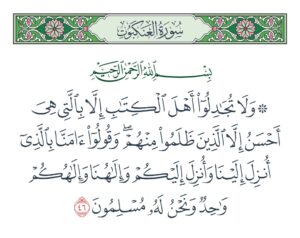 سُورَةُ العَنكَبُوت
بِسْمِ اللَّهِ الرَّحْمَٰنِ الرَّحِيمِ
۞ وَلَا تُجَٰدِلُوٓا۟ أَهْلَ ٱلْكِتَٰبِ إِلَّا بِٱلَّتِى هِىَ
أَحْسَنُ إِلَّا ٱلَّذِينَ ظَلَمُوا۟ مِنْهُمْ ۖ وَقُولُوٓا۟ ءَامَنَّا بِٱلَّذِىٓ
أُنزِلَ إِلَيْنَا وَأُنزِلَ إِلَيْكُمْ وَإِلَٰهُنَا وَإِلَٰهُكُمْ
وَٰحِدٌ وَنَحْنُ لَهُۥ مُسْلِمُونَ ٤٦